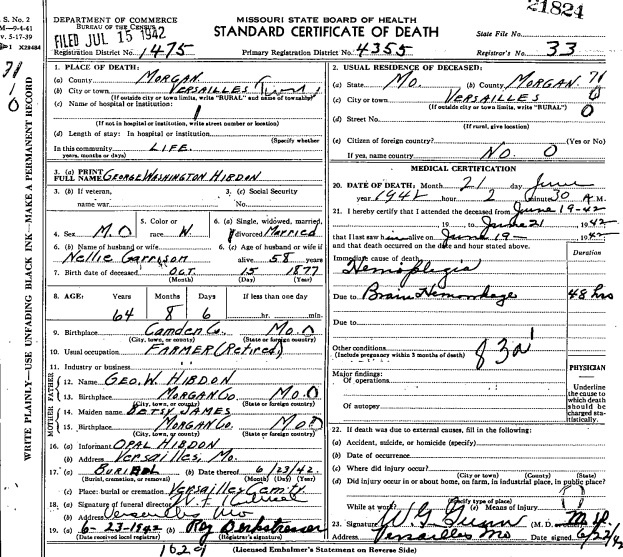 21824
S. No. 2
DEPARTMENT OF COMMERCE
BUREAU OF THE CENSUS
FILED JUL 15 1942
MISSOURI STATE BOARD OF HEALTH
STANDARD CERTIFICATE OF DEATH
State File No.
Registration District No. 1475
Primary Registration District No. 4355
Registrar's No. 33
WRITE PLAINLY—USE UNFADING BLACK INK—MAKE A PERMANENT RECORD
1. PLACE OF DEATH:
(a) County MORGAN
(b) City or town VERSAILLES
(If outside city or town limits, write "RURAL" and name of township)
(c) Name of hospital or institution:
(If not in hospital or institution, write street number or location)
(d) Length of stay: In hospital or institution
(Specify whether
In this community LIFE.
years, months or days)
3. (a) PRINT
FULL NAME GEORGE WASHINGTON HIBDON
3. (b) If veteran,
name war
3. (c) Social Security
No.
4. Sex M.
5. Color or
race W.
6. (a) Single, widowed, married,
divorced Married
6. (b) Name of husband or wife
Nellie Garrison
6. (c) Age of husband or wife if
alive 58 years
7. Birth date of deceased OCT. 15 1877
(Month) (Day) (Year)
8. AGE: Years Months Days If less than one day
64 8 6 hr. min.
9. Birthplace Camden Co. Mo.
(City, town, or county) (State or foreign country)
10. Usual occupation FARMER (Retired)
11. Industry or business
FATHER
12. Name GEO. W. HIBDON
13. Birthplace MORGAN CO. Mo.
(City, town, or county) (State or foreign country)
MOTHER
14. Maiden name BETSY JAMES
15. Birthplace MORGAN CO. Mo.
(City, town, or county) (State or foreign country)
16. (a) Informant OPAL HIBDON
(b) Address Versailles, Mo.
17. (a) BURIAL (b) Date thereof 6/23/42
(Burial, cremation, or removal) (Month) (Day) (Year)
(c) Place: burial or cremation Versailles
18. (a) Signature of funeral director
(b) Address Versailles Mo
19. (a) 6-23-1942 (b)
(Date received local registrar) (Registrar's signature)
2. USUAL RESIDENCE OF DECEASED:
(a) State Mo. (b) County MORGAN
(c) City or town VERSAILLES
(If outside city or town limits, write "RURAL")
(d) Street No.
(If rural, give location)
(e) Citizen of foreign country? (Yes or No)
If yes, name country No.
MEDICAL CERTIFICATION
20. DATE OF DEATH: Month 21 day June
year 1942 hour 2 minute 30 A.M.
21. I hereby certify that I attended the deceased from June 19-42
19 to June 21 1942
that I last saw him alive on June 19 1942
and that death occurred on the date and hour stated above.
Duration
Immediate cause of death
Hemoplegia
Due to Brain Hemorrhage 48 hrs
Due to
Other conditions
(Include pregnancy within 3 months of death)
83a
PHYSICIAN
Underline
the cause to
which death
should be
charged sta-
tistically.
Major findings:
Of operations
Of autopsy
22. If death was due to external causes, fill in the following:
(a) Accident, suicide, or homicide (specify)
(b) Date of occurrence
(c) Where did injury occur?
(City or town) (County) (State)
(d) Did injury occur in or about home, on farm, in industrial place, in public place?
(Specify type of place)
While at work? (e) Means of injury
23. Signature W. G. Gunn (M. D.
Address Versailles Mo Date signed 6/22/42
1629
(Licensed Embalmer's Statement on Reverse Side)